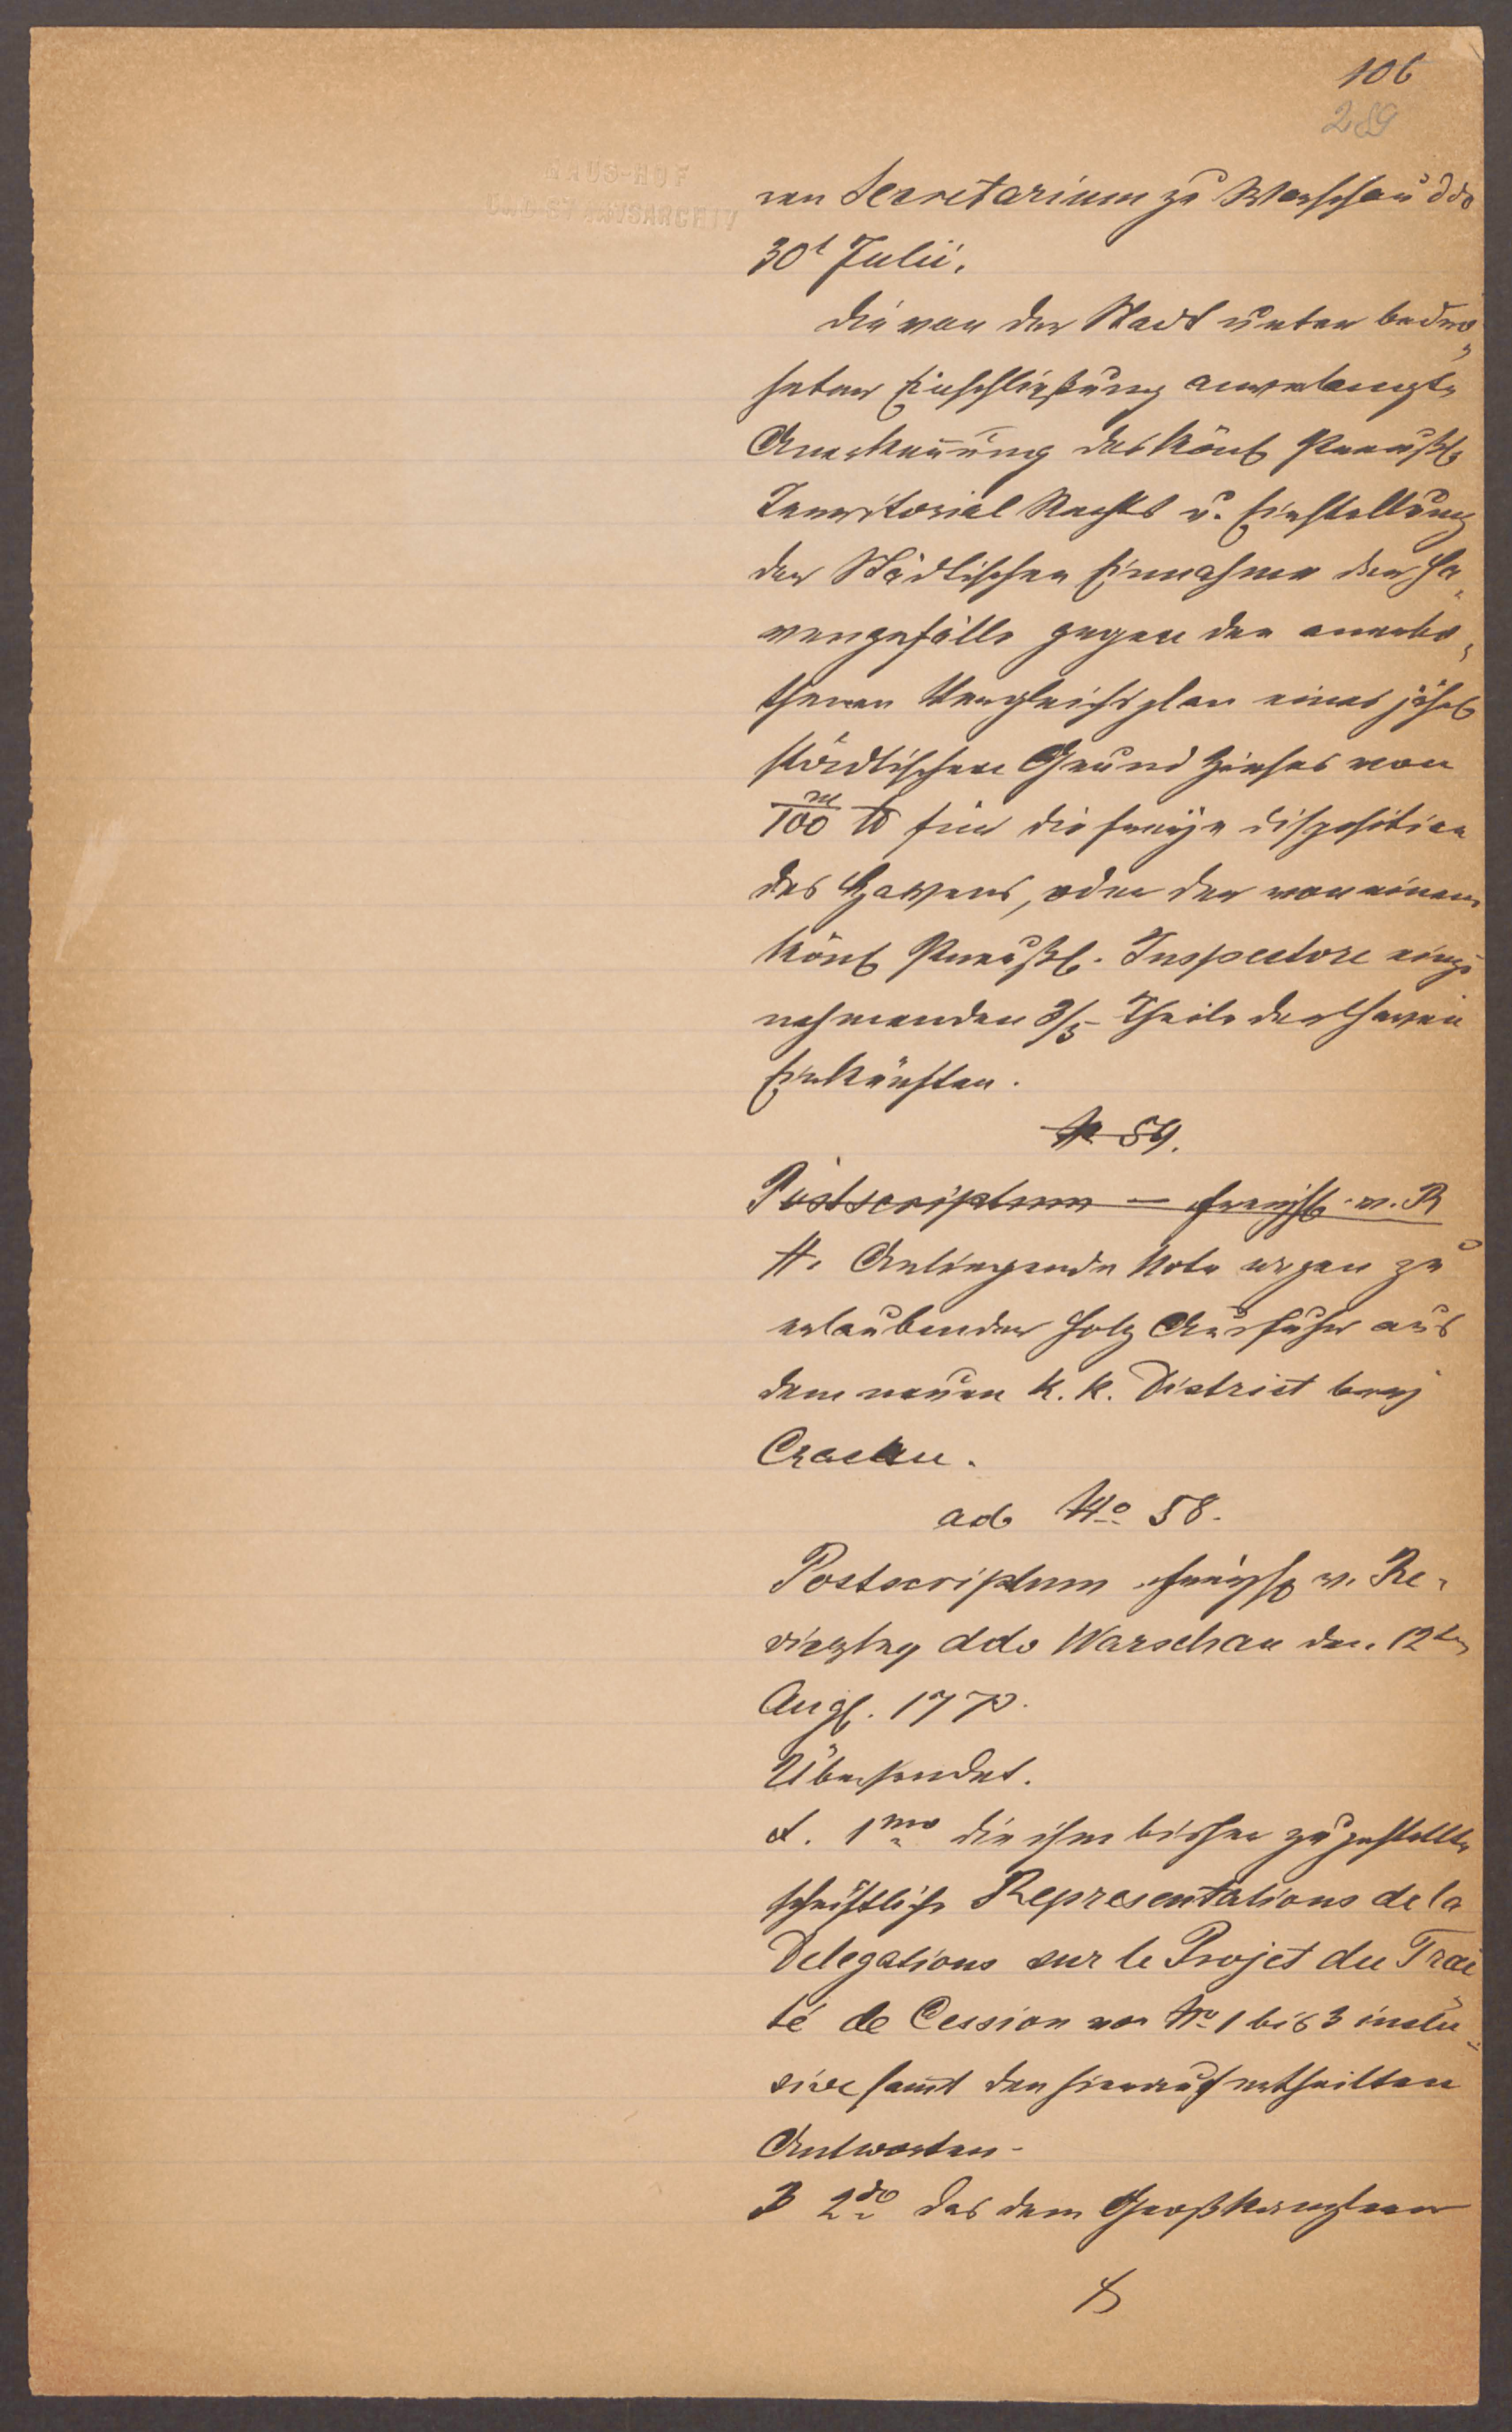 106
289
HAUS-HOF
UND STAATSARCHIV
ren Secretarium zu Warschau ddo
30t Julii.
die von der Stadt unter bedro-
heter Einschließung anverlangte
Anerkennung des Köngl Preußl
Territorial Rechts u. Einstellung
der Städtischen Einnahme der Ha-
vengefälle gegen den anerbo-
thenen Vergleichsplan eines jährl
städtischen Grund Zinses von
m/100 für die freÿe disposition
des Havens, oder der von einem
Köngl Preußl. Inspectore einzu
nehmenden 3/5 Theile der Haven
Einkünften.
N 59.
Postscriptum – freyh. v. R
A. Anliegende Note wegen zu
erlaubender Holz Ausfuhr aus
dem neuen k. k. District beÿ
Cracau.
ad No 58.
Postscriptum freyh v. Re-
viczky ddo Warschau den 12ten
Aug. 1773.
Übersendet.
A. 1mo die ihm bisher zugestellte
schriftliche Representations de la
Delegations sur le Projet du Trai
té de Cession von No 1 bis 3 inclu-
sive samt den hierauf ertheilten
Antworten.
B 2do das dem Großkanzler